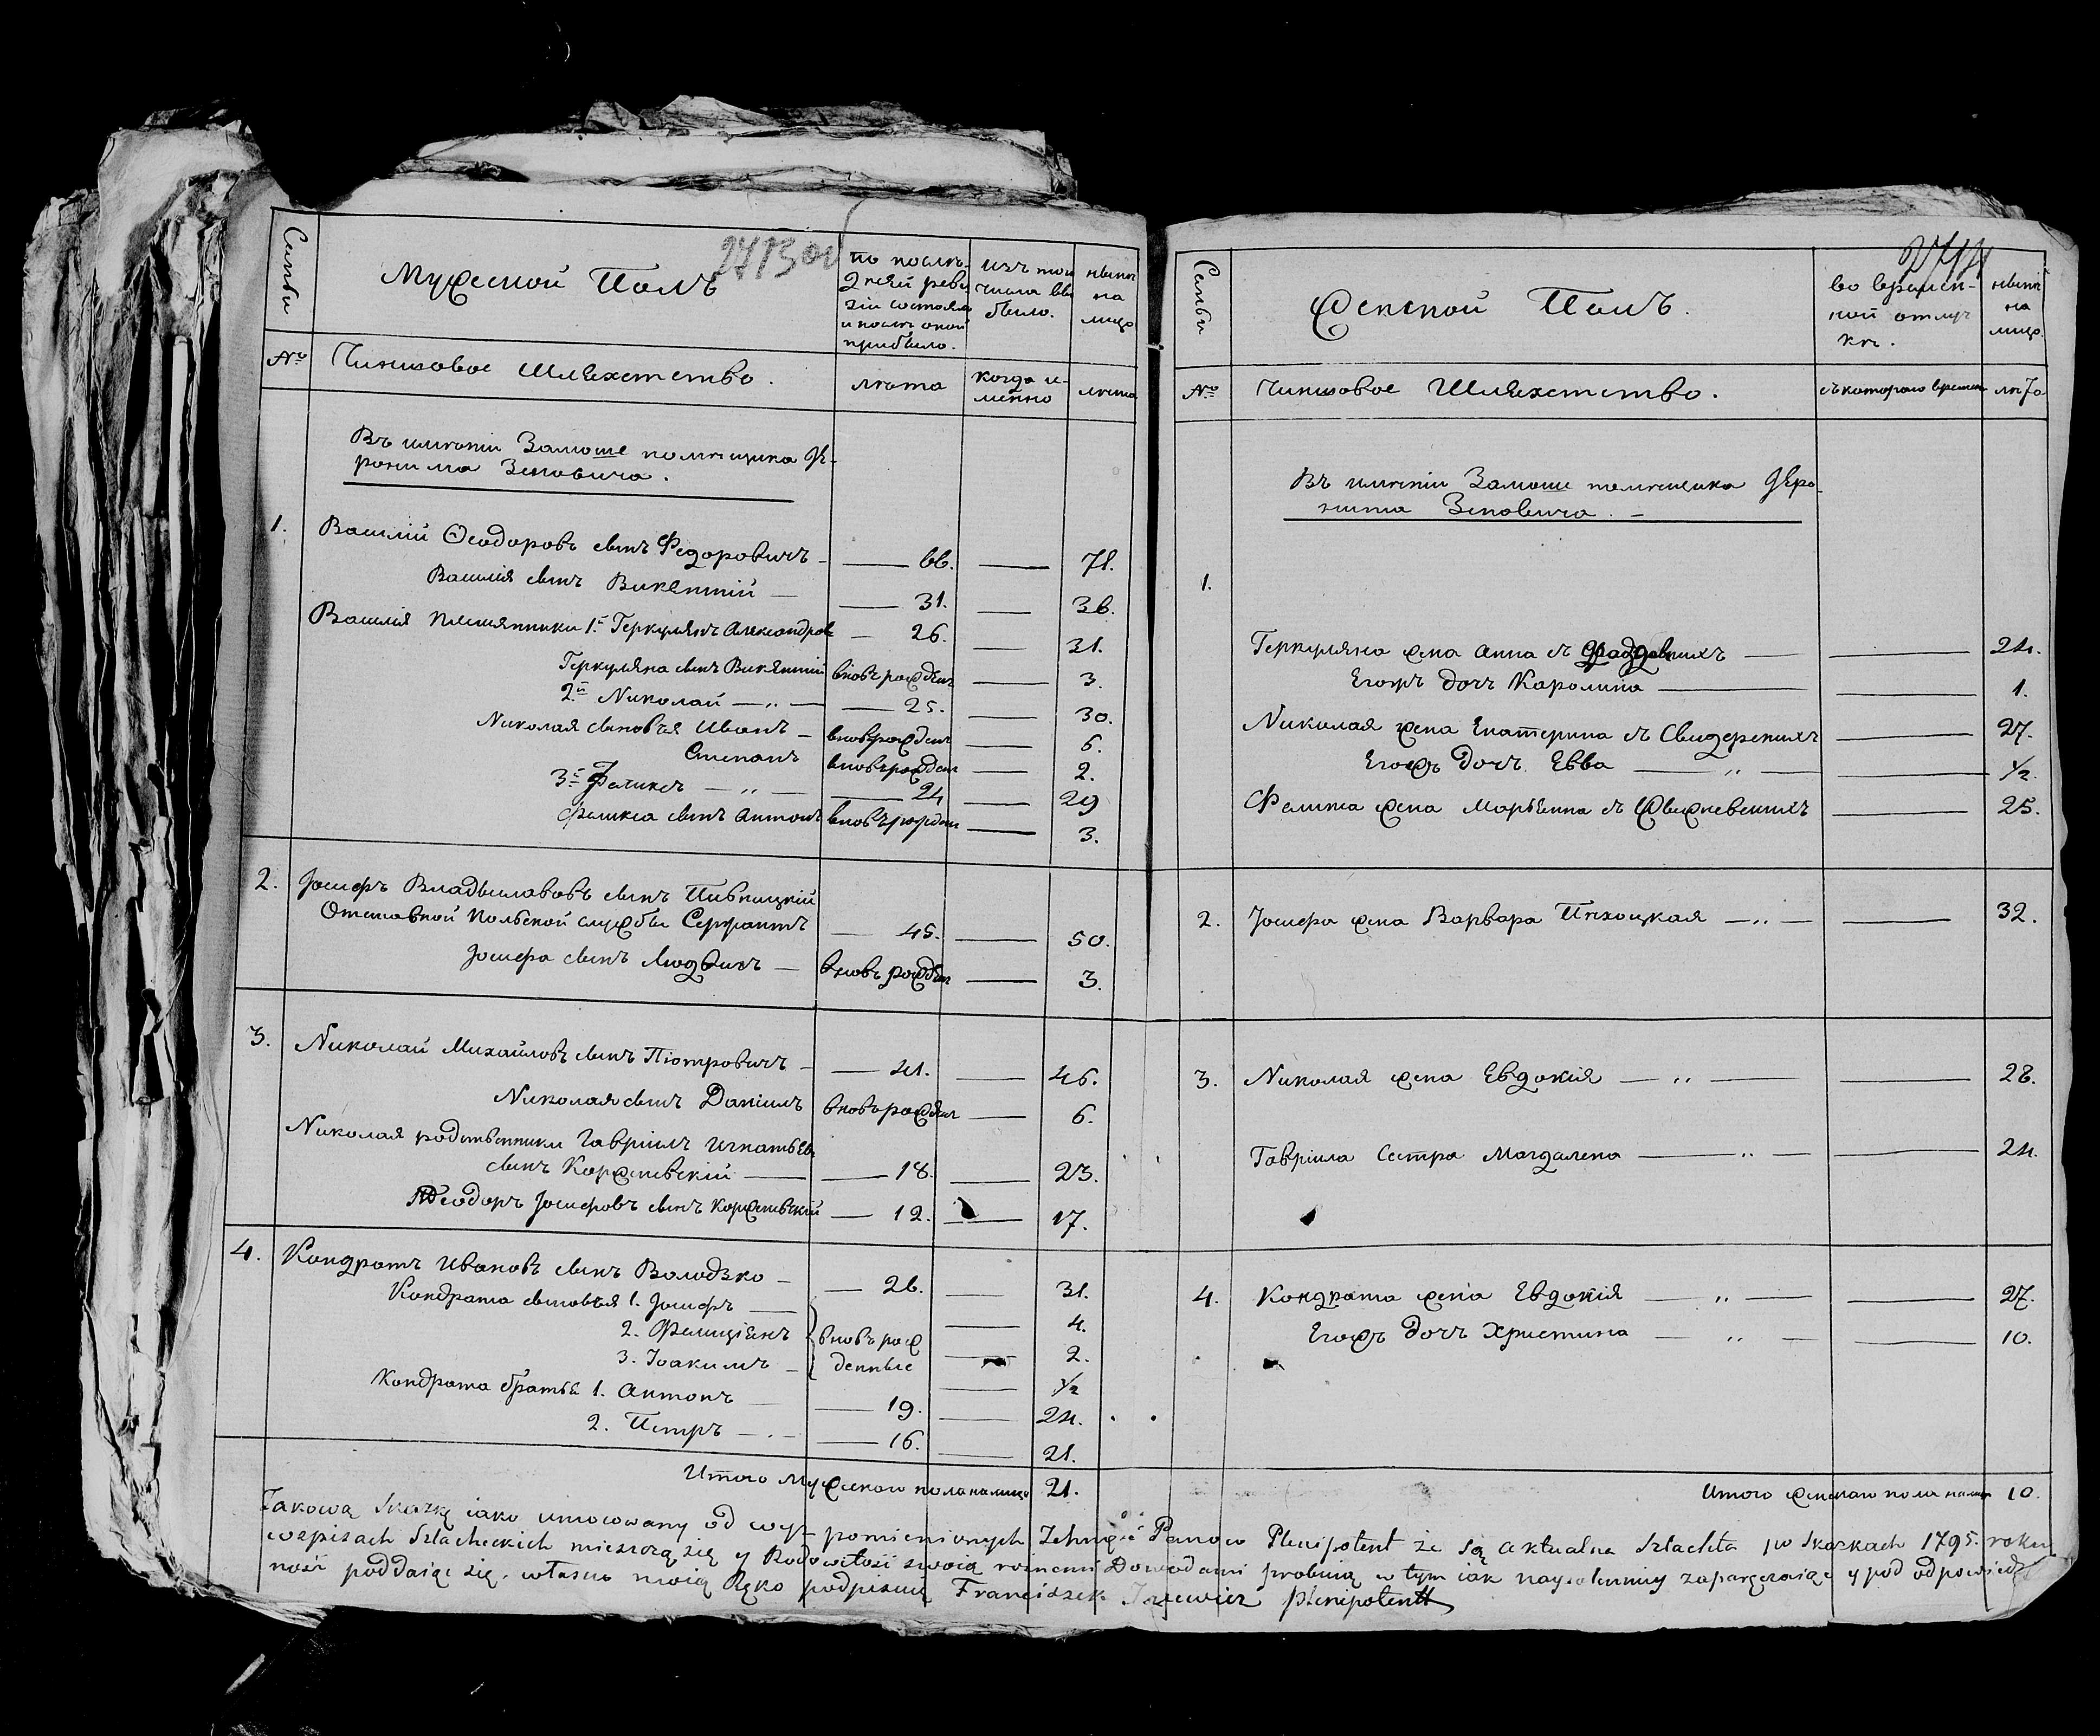 2713 об
Семьи
Мужеской Полъ
по послѣ-
дней реви
зіи состояло
и послѣ оной
прибыло.
изъ того
числа вы
было.
нынѣ
на
лицо
№
Чиншовое Шляхетство.
лѣта
когда и-
менно
лѣта
Въ имѣніи Замоше помѣщика Іе-
ронима Зеновича.
1. Василій Ѳеодоровъ сынъ Федоровичъ — 66. — 71.
Василія сынъ Викентій — 31. — 36.
Василія племянники 1.й Геркулянъ Александровъ — 26. — 31.
Геркуляна сынъ Викентій вновь рожденъ — 3.
2й Николай — „ — 25. — 30.
Николая сыновья Иванъ — вновь рожденъ — 6.
Степанъ вновь рожденъ — 2.
3й Феликсъ — „ — 24 — 29
Феликса сынъ Антонъ вновь рожденъ — 3.
2. Іосифъ Владыславовъ сынъ Пивницкій
Отставной Польской службы Сержантъ — 45. — 50.
Іосифа сынъ Людвикъ — вновь рожденъ — 3.
3. Николай Михайловъ сынъ Піотровичъ — 41. — 46.
Николая сынъ Даніилъ вновь рожденъ — 6.
Николая родственники Гавріилъ Игнатьевъ
сынъ Корженевскій — 18. — 23.
Ѳеодоръ Іосифовъ сынъ Корженевскій — 12. — 17.
4. Кондратъ Ивановъ сынъ Володзко — 26. — 31.
Кондрата сыновья 1. Іосифъ — 4.
2. Фелиціянъ вновь рож — 2.
3. Іоакимъ — денные — ½
Кондрата братья 1. Антонъ — 19. — 24.
2. Петръ — „ — 16. — 21.
Итого мужеского пола на лицо 21.
2714
Семьи
Женской Полъ.
во времен-
ной отлуч
кѣ.
нынѣ
на
лицо.
№
Чиншовое Шляхетство.
съ которого времени
лѣта
Въ имѣніи Замоше помѣщика Іеро-
нима Зеновича. —
1.
Геркуляна жена Анна съ — 24.
Егожъ дочь Каролина — 1.
Николая жена Екатерина съ Свидерскихъ — 27.
Егожъ дочь Евва — „ — ½.
Феликса жена Марьянна съ — 25.
2. Іосифа жена Варвара Пѣхоцкая — „ — 32.
3. Николая жена Евдокія — „ — 28.
Гавріила Сестра Магдалена — „ — 24.
4. Кондрата жена Евдокія — „ — 27.
Егожъ дочь Христина — „ — 10.
Итого женскаго пола на лицо 10.
Takową Skazkę iako umocowany od wyż pomienionych Jchmość Panow Plenipotent że są aktualna Szlachta po Skazkach 1795. roku
w spisach Szlacheckich mieszczą się y Rodowitość swoią roznemi Dowodami probuią w tym iak naysolenniey zaparęczaiąc y pod odpowiedz
ność poddaiąc się. własną moią Ręko podpisuię Franciszek plenipotent